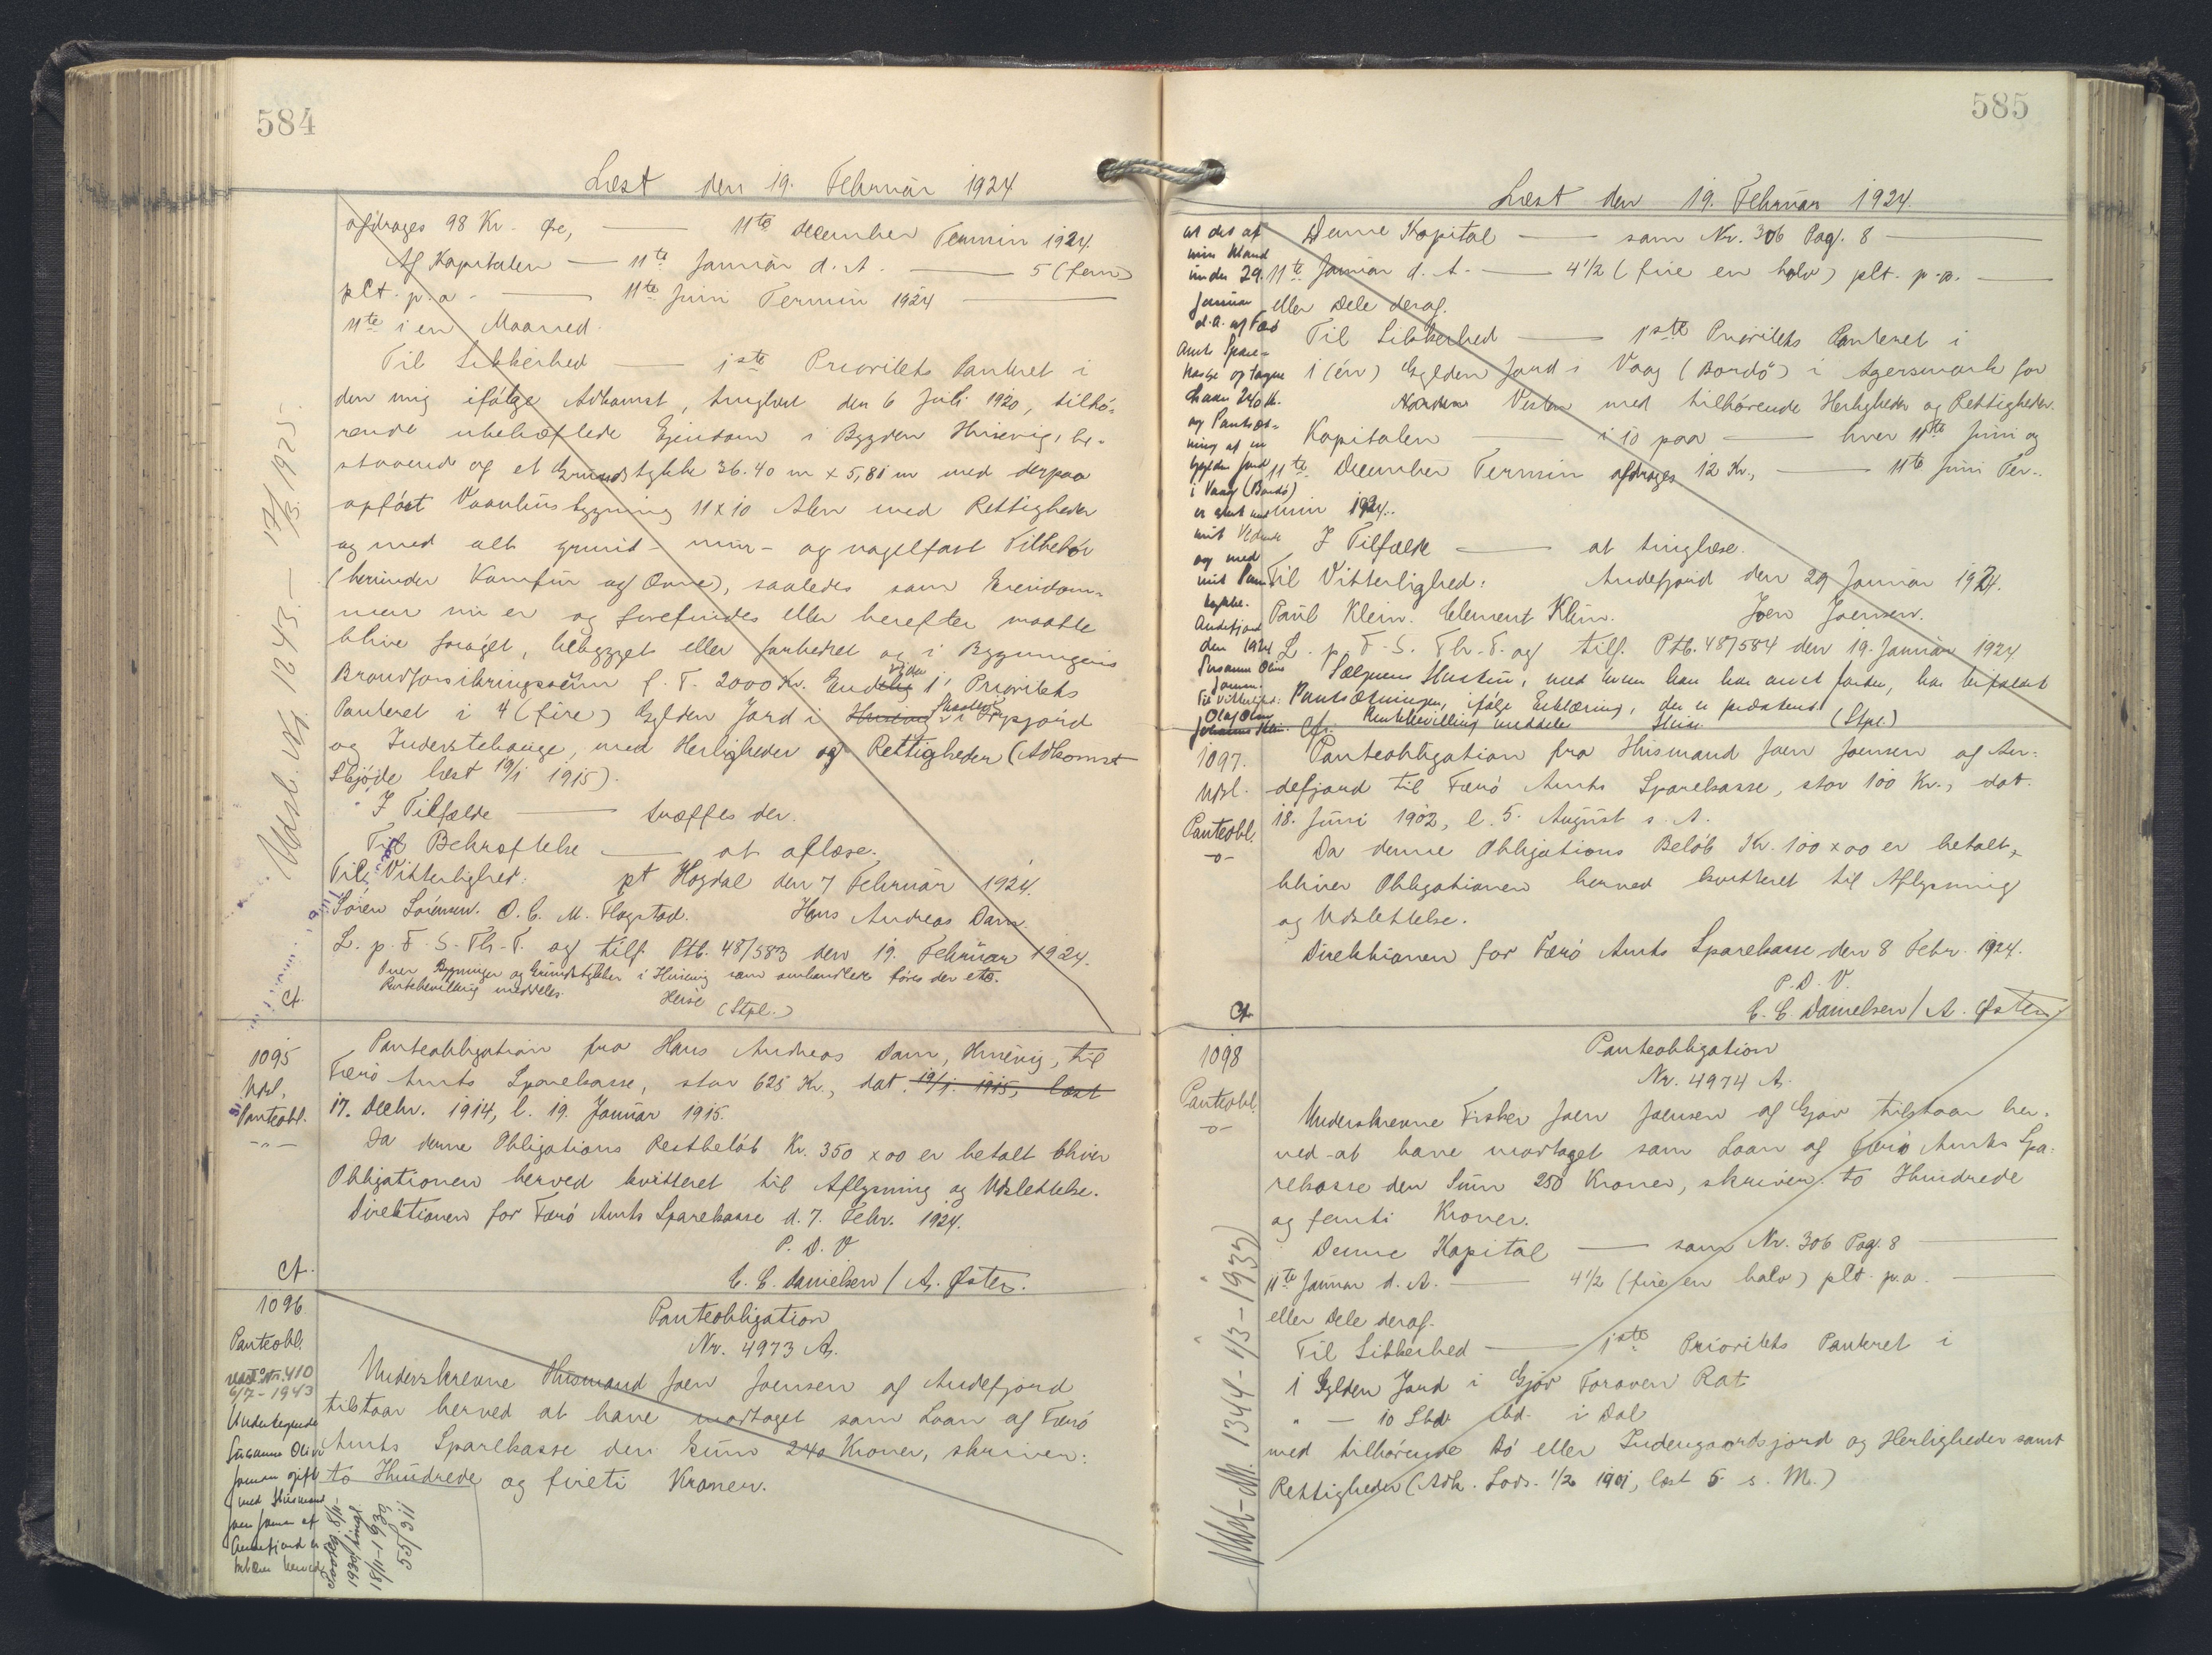 584
Læst den 19. Februar 1924
afdrages 98 Kr. Øre, — 11te December Termin 1924.
Af Kapitalen — 11te Januar d. A. — 5 (fem)
pCt. p. a. — 11te Juni Termin 1924 —
11te i en Maaned.
Til Sikkerhed — 1ste Prioritets Panteret i
den mig ifølge Adkomst, tinglæst den 6 Juli 1920, tilhø-
rende ubehæftede Ejendom i Bygden Husevig, be-
staaende af et Grundstykke 36.40 m x 5,81 m med derpaa
opført Vaanhusbygning 11 x 10 Alen med Rettigheder
og med alt grund- mur- og nagelfast Tilbehør
(herunder Komfur og Ovne), saaledes som Ejendom-
men nu er og forefindes eller herefter maatte
blive forøget, bebygget eller forbedret og i Bygningens
Brandforsikringssum p. T. 2000 Kr. Endelig 1' Prioritets
Panteret i 4 (fire) Gylden Jord i Husevig
og Inderstehauge, med Herligheder og Rettigheder (Adkomst
Skjøde læst 19/1 1915).
I Tilfælde — træffes der.
Til Bekræftelse — at aflæse.
Til Vitterlighed: pt Høgdal den 7 Februar 1924.
Søren Sørensen. O. C. M. Flagstad. Hans Andreas Dam.
L. p. F. S. Th. T. og tilf. Ptb. 48/583 den 19. Februar 1924.
Over Bygninger og Grundstykker i Husevig som omhandlere føres der etc.
Rentebevilling meddeles. Heise
(Stpl.)
Ct.
Udsl. Nr. 1243. — 17/3. 1925.
1095
Udsl.
Panteobl.
Panteobligation fra Hans Andreas Dam, Husevig, til
Færø Amts Sparekasse, stor 625 Kr., dat. 19/1 1915, læst
17. Decbr. 1914, l. 19. Januar 1915.
Da denne Obligations Restbeløb Kr. 350 x 00 er betalt bliver
Obligationen herved kvitteret til Aflysning og Udslettelse.
Direktionen for Færø Amts Sparekasse d. 7. Febr. 1924.
P. D. V
C. C. Danielsen / A. Øster.
Ct.
1096
Panteobl.
udsl. Nr. 410
6/7 - 1943
Undertegnede
Susanne Olivi
Joensen gift
med Husmand
Joen Joensen af
Andefjord er
bekem herved
Panteobligation
Nr. 4973 A.
Underskrevne Husmand Joen Joensen af Andefjord
tilstaar herved at have modtaget som Laan af Færø
Amts Sparekasse den Sum 240 Kroner, skriver:
to Hundrede og fireti Kroner.
18/11-1930
55/311
585
Læst den 19. Februar 1924.
at det af
min Mand
under 29.
Januar
d. A. af Færø
Amts Spare-
kasse optagne
Laan 240 K.
og Pantsæt-
ning af en
Gylden Jord
i Vaag (Bordø)
er sket med
mit Vidende
og med
mit Sam-
tykke.
Andefjord
den 1924
Susanne Olivi
Joensen.
Til Vitterlighed:
Olaj Olsen
Johannes Klein.
Denne Kapital — som Nr. 306 Pag. 8 —
11te Januar d. A. — 4 1/2 (fire en halv) pCt. p. a. —
eller Dele deraf.
Til Sikkerhed — 1ste Prioritets Panteret i
1 (én) Gylden Jord i Vaag (Bordø) i Agersmark for
Norden Vesten med tilhørende Herligheder og Rettigheder.
Kapitalen — i 10 paa — hver 11te Juni og
11te December Termin afdrages 12 Kr., — 11te Juni Ter-
min 1924.
I Tilfælde — at tinglæse.
Til Vitterlighed: Andefjord den 29 Januar 1924.
Paul Klein. Clement Klein. Joen Joensen.
L. p. F. S. Th. T. og tilf. Ptb. 48/584 den 19. Januar 1924
Sælgerens Hustru, med hvem han har avet Jorden, har bifaldt
Pantsætningen, ifølge Erklæring, der er præsteret.
Ct. Rentebevilling meddeles Heise (Stpl.)
1097.
Udsl.
Panteobl.
-o-
Panteobligation fra Husmand Joen Joensen af An-
defjord til Færø Amts Sparekasse, stor 100 Kr., dat.
18. Juni 1902, l. 5. August s. A.
Da denne Obligations Beløb Kr. 100 x 00 er betalt,
bliver Obligationen herved kvitteret til Aflysning
og Udslettelse.
Direktionen for Færø Amts Sparekasse den 8 Febr. 1924.
P. D. V.
C. C. Danielsen / A. Øster
Ct.
1098
Panteobl.
-o-
Panteobligation
Nr. 4974 A.
Underskrevne Fisker Joen Joensen af Gjov tilstaar her-
ved at have modtaget som Laan af Færø Amts Spa-
rekasse den Sum 250 Kroner, skriver: to Hundrede
og femti Kroner.
Denne Kapital — som Nr. 306 Pag. 8 —
11te Januar d. A. — 4 1/2 (fire en halv) pCt. p. a. —
eller Dele deraf.
Til Sikkerhed — 1ste Prioritets Panteret i
1 Gylden Jord i Gjov Foroven Rat
" — 10 Skd. ibd. i Dal
med tilhørende Bø eller Indengaardsjord og Herligheder samt
Rettigheder (Adk. Lods. 1/2 1901, læst 5 s. M.)
Udsl. M. 1344 - 1/3 - 1937